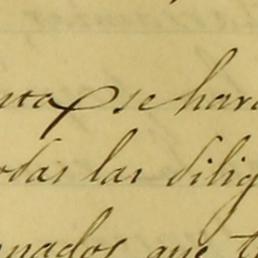 nta se hara
odas las dilig
nados que t